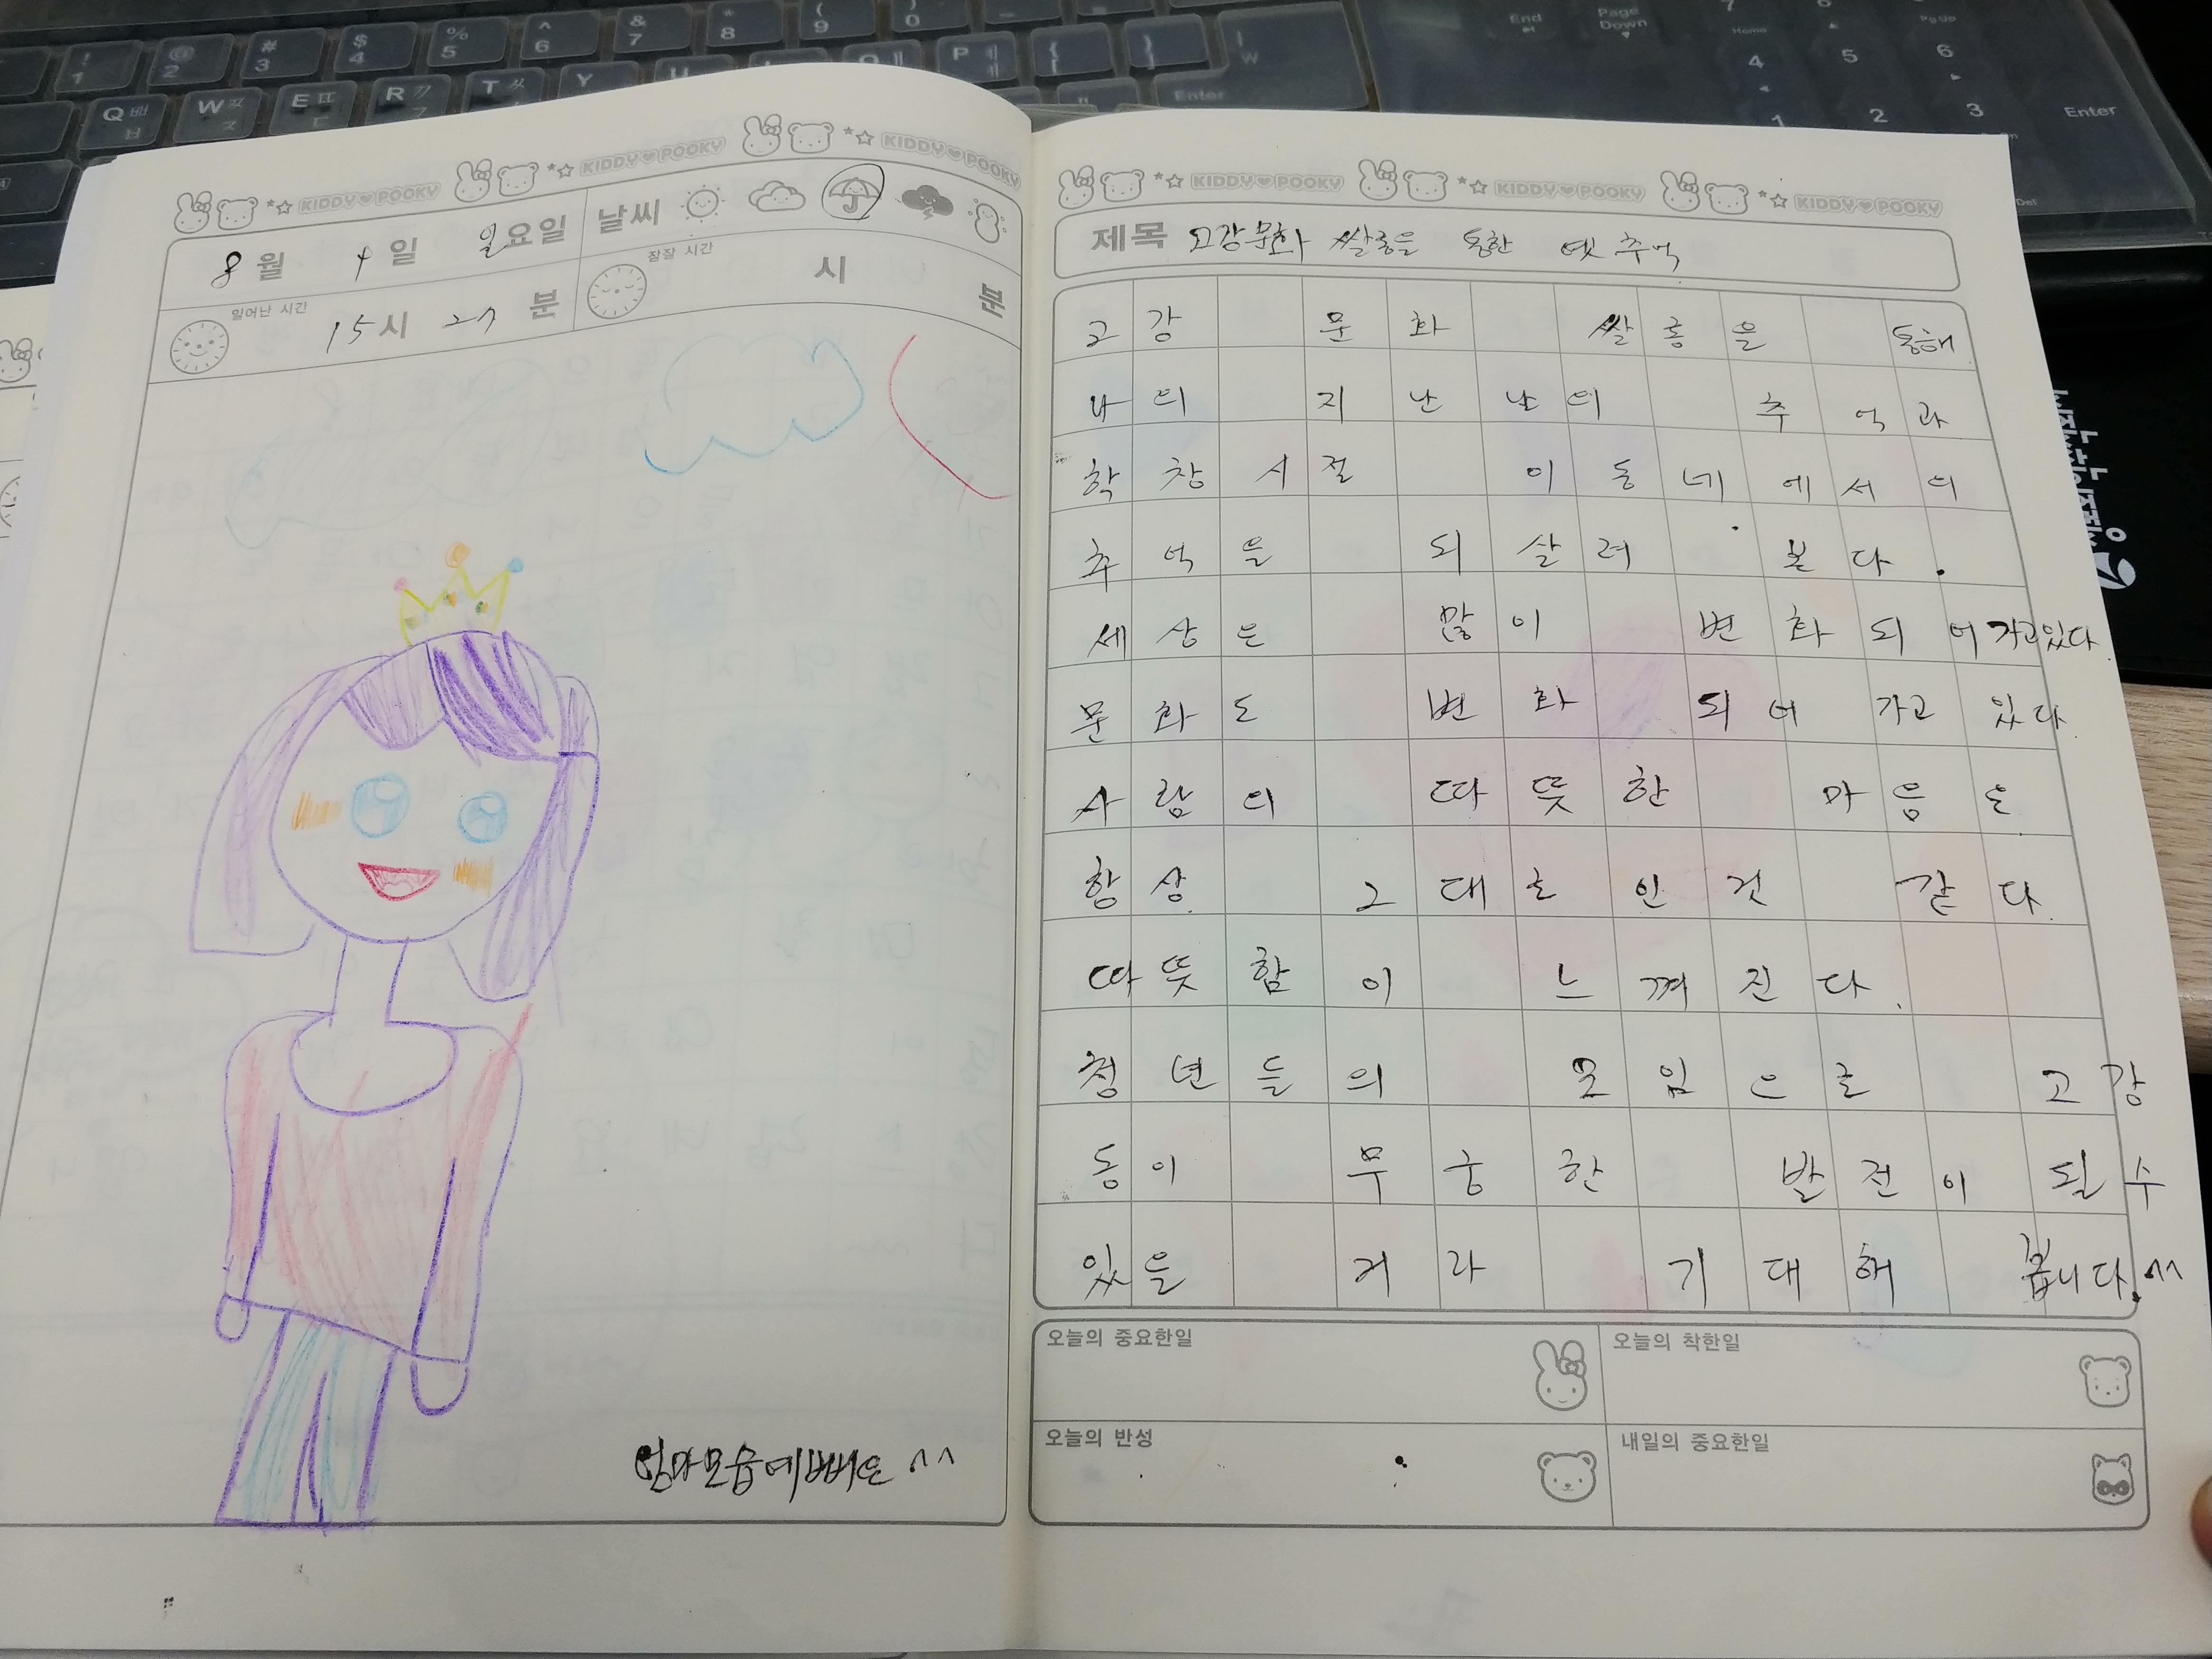 KIDDY POOKY KIDDY POOKY KIDDY POOKY
8월 4일 일요일 날씨
일어난 시간 15시 27분 잠잘 시간 시 분
엄마모습예뻐은 ^^
KIDDY POOKY KIDDY POOKY KIDDY POOKY
제목 고강문화 쌀롱을 통한 옛 추억
고강 문화 쌀롱을 통해
나의 지난날의 추억과
학창시절 이동네에서의
추억을 되살려 본다.
세상은 많이 변화되어가고있다.
문화도 변화 되어 가고 있다.
사람의 따뜻한 마음은
항상 그대로인것 같다.
따뜻함이 느껴진다.
청년들의 모임으로 고강
동이 무궁한 발전이 될 수
있을 거라 기대해 봅니다.^^
오늘의 중요한일 오늘의 착한일
오늘의 반성 내일의 중요한일
! 1 @ 2 # 3 $ 4 % 5 ^ 6 & 7 * 8 ( 9 ) 0
Q ㅃ ㅂ W ㅉ ㅈ E ㄸ ㄷ R ㄲ ㄱ T ㅆ Y U P ㅖ { } W
Enter
End Page Down 7 Home PgUp
4 5 6
1 2 3 Enter
Del